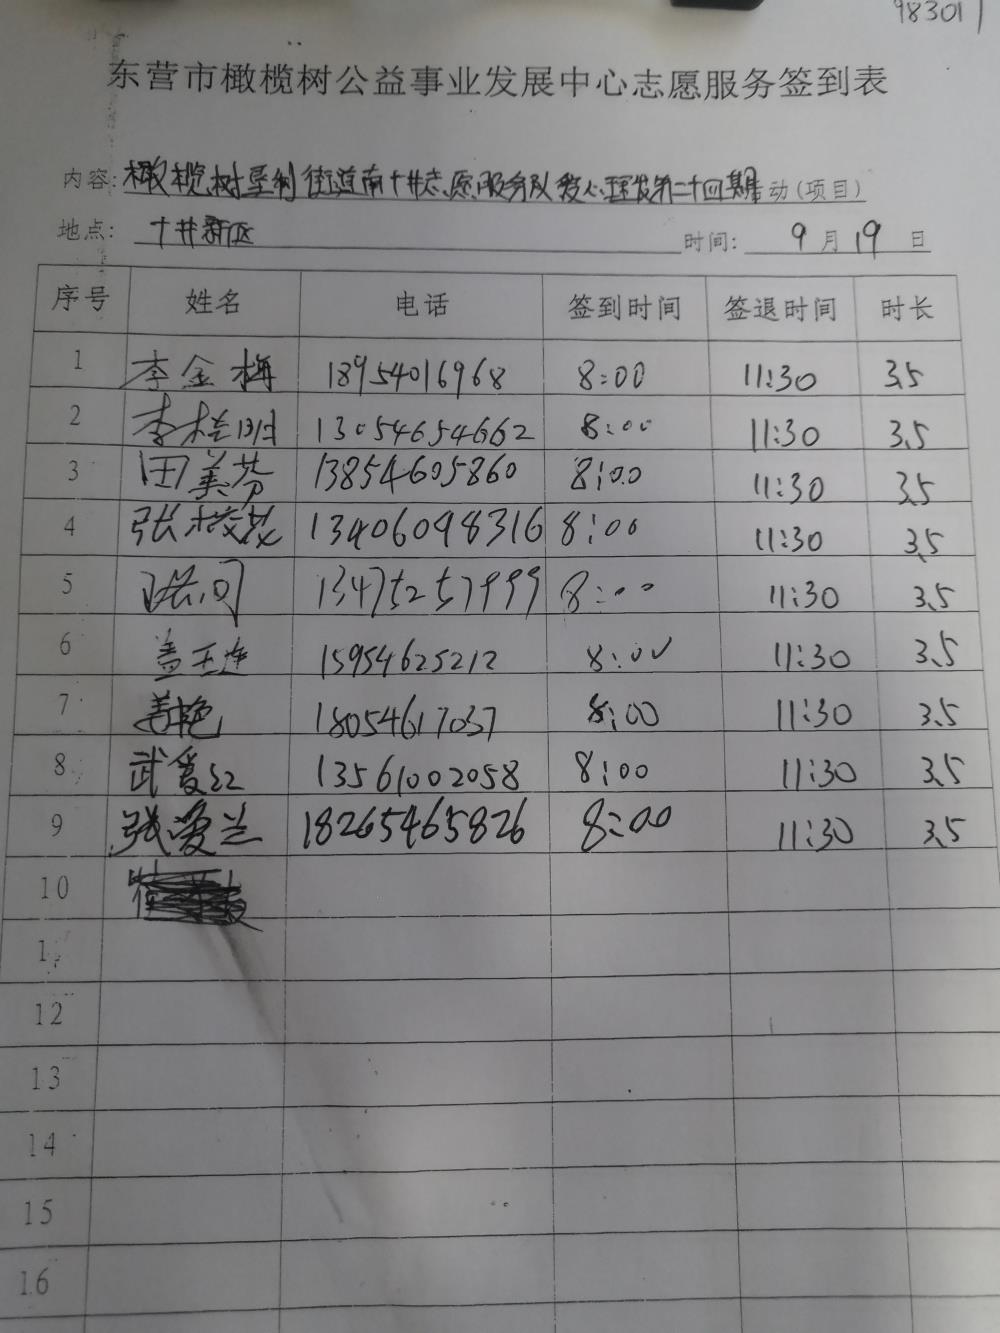 98301
东营市橄榄树公益事业发展中心志愿服务签到表
内容: 橄榄树垦利街道南十井志愿服务队爱心理发第二十四期动(项目)
地点: 十井新区 时间: 9 月 19 日
序号 姓名 电话 签到时间 签退时间 时长
1 李金梅 18954016968 8:00 11:30 3.5
2 李桂 13054654662 8:00 11:30 3.5
3 田美芬 13854605860 8:00 11:30 3.5
4 张 13406098316 8:00 11:30 3.5
5 13475257999 8:00 11:30 3.5
6 盖玉莲 15954625212 8:00 11:30 3.5
7 姜艳 18054617037 8:00 11:30 3.5
8 武爱红 13561002058 8:00 11:30 3.5
9 张爱兰 18265465826 8:00 11:30 3.5
10
1
12
13
14
15
16